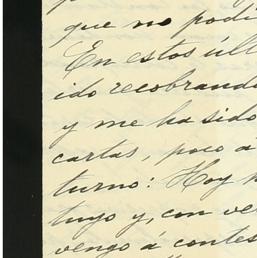 que no podí
En estos últ
ido recobrand
y me ha sido
cartas, poco á
turno: Hoy
tuyo y, con ve
vengo á contes